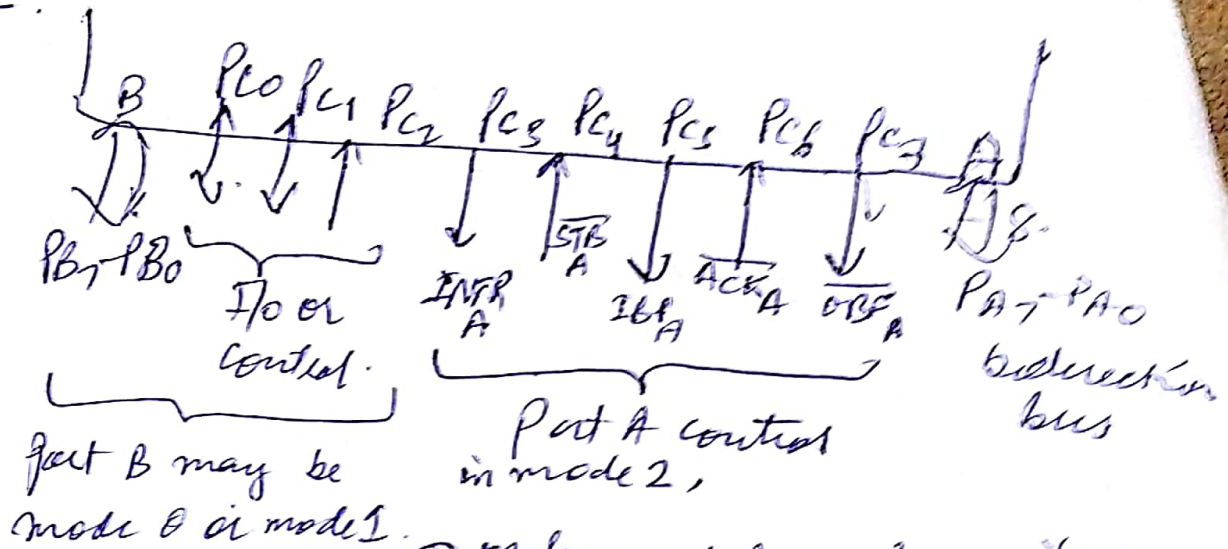 B PC0 PC1 PC2 PC3 PC4 PC5 PC6 PC7 A
PB7-PB0
I/o or
control.
INTR A
S̅T̅B̅ A
IBF A
A̅C̅K̅ A
O̅B̅F̅ A
8.
PA7-PA0
bidirection
bus
Port B may be
mode 0 or mode 1.
Port A control
in mode 2,